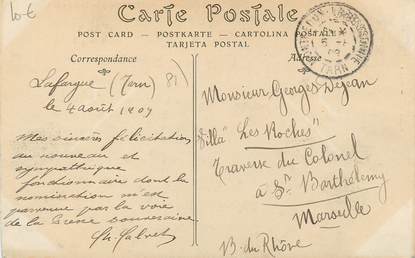 10€
Carte Postale
POST CARD — POSTKARTE — CARTOLINA POSTALE
TARJETA POSTAL
Correspondance
Adresse
TARN
Lafargue (Tarn) 81)
le 4 août 1909
Mes sincères félicitations
au nouveau et
sympathique
fonctionnaire dont la
nomination m'est
parvenue par la voie
de la
Ch. Calvet
Monsieur Georges Dejean
Villa "Les Roches"
Traverse du Colonel
à St Barthélemy
Marseille
B. du Rhône